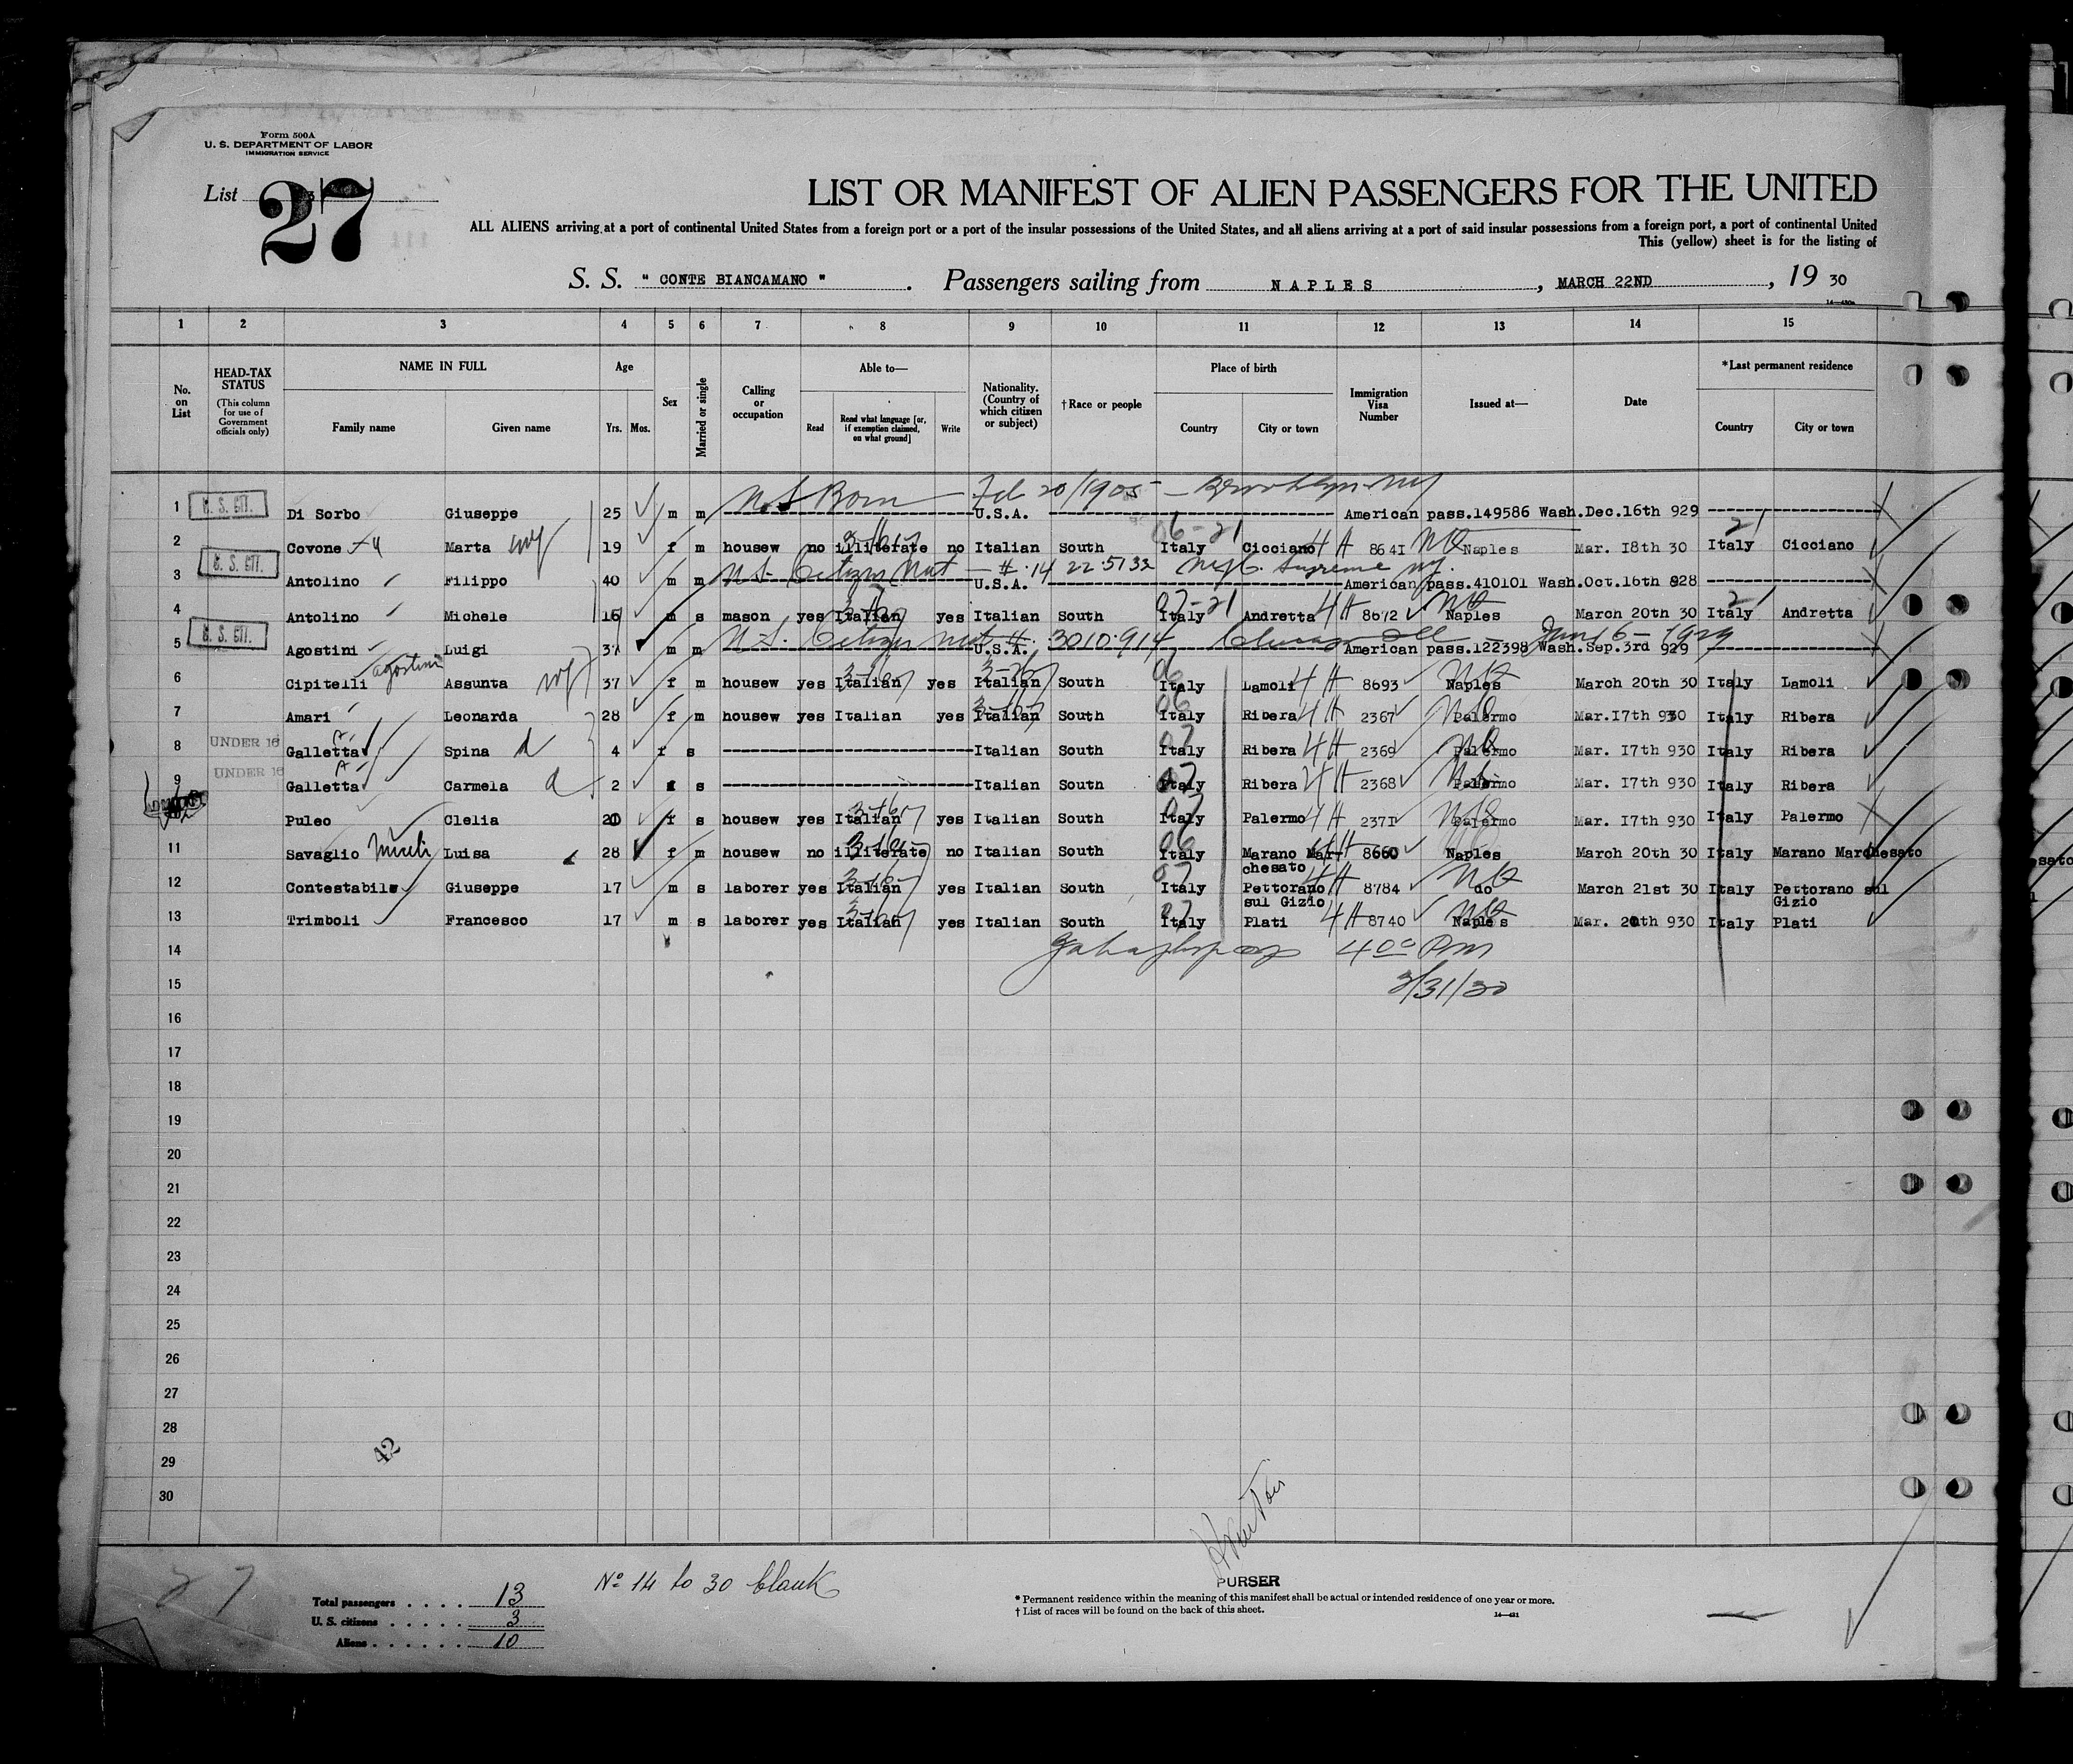 Form 500A
U. S. DEPARTMENT OF LABOR
IMMIGRATION SERVICE
List 27
LIST OR MANIFEST OF ALIEN PASSENGERS FOR THE UNITED
ALL ALIENS arriving at a port of continental United States from a foreign port or a port of the insular possessions of the United States, and all aliens arriving at a port of said insular possessions from a foreign port, a port of continental United
This (yellow) sheet is for the listing of
S. S. " CONTE BIANCAMANO " . Passengers sailing from NAPLES , MARCH 22ND , 19 30
1 2 3 4 5 6 7 8 9 10 11 12 13 14 15
No. on List
HEAD-TAX STATUS (This column for use of Government officials only)
NAME IN FULL Family name Given name
Age Yrs. Mos.
Sex
Married or single
Calling or occupation
Able to— Read Read what language [or, if exemption claimed, on what ground] Write
Nationality. (Country of which citizen or subject)
†Race or people
Place of birth Country City or town
Immigration Visa Number
Issued at—
Date
*Last permanent residence Country City or town
U.S. Born Feb 20/1905 - Brooklyn NY
1 Di Sorbo Giuseppe 25 m m U.S.A. American pass.149586 Wash.Dec.16th 929
2 Covone Marta wf 19 f m housew no illiterate no Italian South Italy Cicciano 8641 Naples Mar. 18th 30 Italy Cicciano
U.S. Citizen Nat Supreme NY.
3 Antolino Filippo 40 m m U.S.A. American pass.410101 Wash.Oct.16th 928
4 Antolino Michele 16 m s mason yes Italian yes Italian South Italy Andretta 8672 Naples March 20th 30 Italy Andretta
U.S. Citizen Nat #. 3010.914 Chicago Ill - 1929
5 Agostini Luigi 37 m m U.S.A. American pass.122398 Wash.Sep.3rd 929
agostini
6 Cipitelli Assunta wf 37 f m housew yes Italian yes Italian South Italy Lamoli 8693 Naples March 20th 30 Italy Lamoli
7 Amari Leonarda 28 f m housew yes Italian yes Italian South Italy Ribera 2367 Palermo Mar.17th 930 Italy Ribera
8 UNDER 16 Galletta Spina d 4 f s Italian South Italy Ribera 2369 Palermo Mar. 17th 930 Italy Ribera
9 UNDER 16 Galletta Carmela d 2 f s Italian South Italy Ribera 2368 Palermo Mar. 17th 930 Italy Ribera
Puleo Clelia 20 f s housew yes Italian yes Italian South Italy Palermo 2371 Palermo Mar. 17th 930 Italy Palermo
11 Savaglio Miceli Luisa 28 f m housew no illiterate no Italian South Italy Marano Mar- 8660 Naples March 20th 30 Italy Marano Marchesato
chesato
12 Contestabile Giuseppe 17 m s laborer yes Italian yes Italian South Italy Pettorano 8784 do March 21st 30 Italy Pettorano sul
sul Gizio Gizio
13 Trimboli Francesco 17 m s laborer yes Italian yes Italian South Italy Plati 8740 Naples Mar. 20th 930 Italy Plati
14 400 PM
15 3/31/30
16
17
18
19
20
21
22
23
24
25
26
27
28
29
30
42
27
No 14 to 30 blank
Total passengers 13
U. S. citizens 3
Aliens 10
PURSER
* Permanent residence within the meaning of this manifest shall be actual or intended residence of one year or more.
† List of races will be found on the back of this sheet.